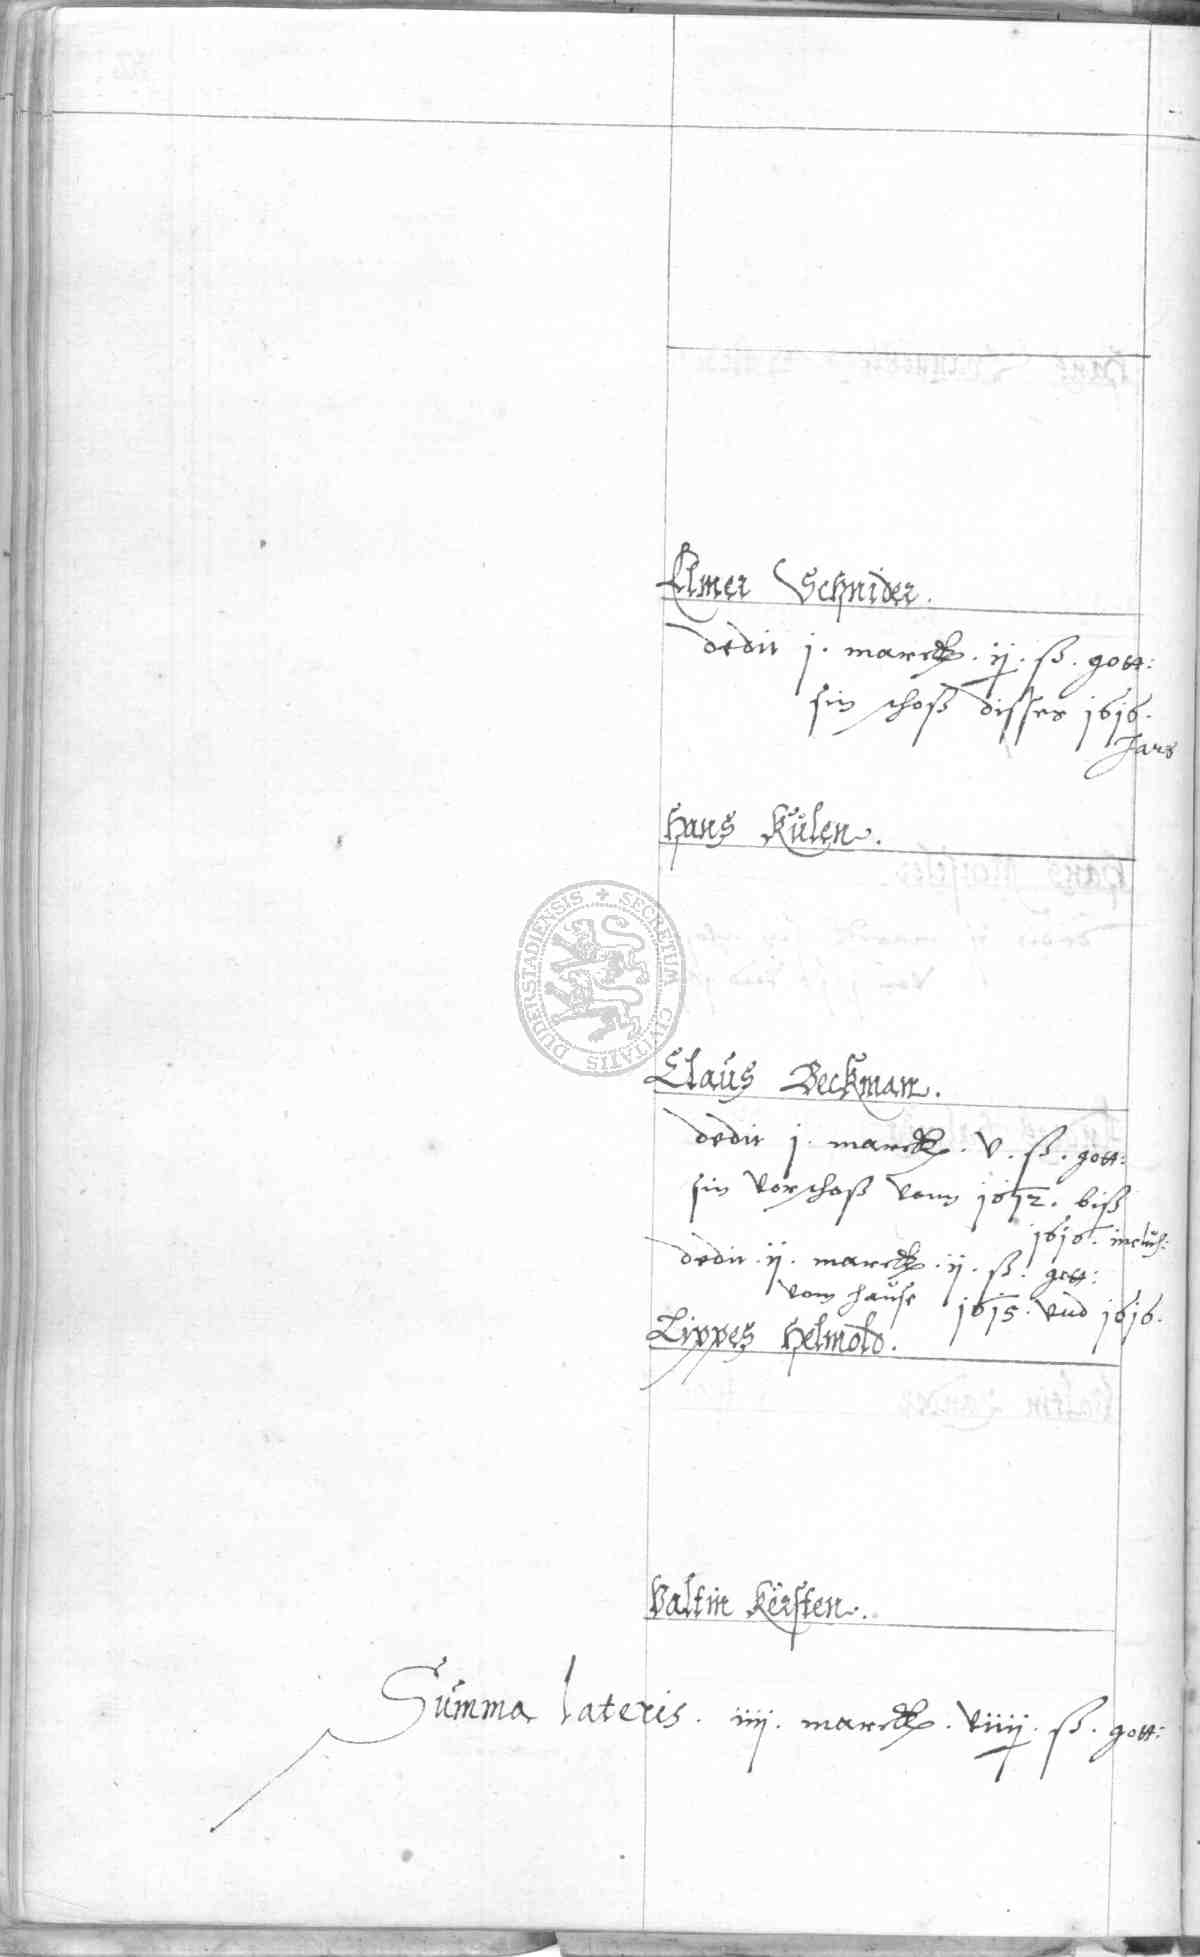 Elmer Schnider.
dedit j. marck. ij. ß. gott:
sin schoß disses 1616.
Jars
Hans Külen.
SECRETUM CIVITATIS DUDERSTADIENSIS
Claus Beckman.
dedit j. marck. v. ß. gott:
sin vorschoß vom 1612. biß
1616. inclus:
dedit. ij. marck. ij. ß. gott:
vom hause 1615. vnd 1616.
Lippes Helmold.
Valtin Kersten.
Summa lateris. iiij. marck. viiij. ß. gott: